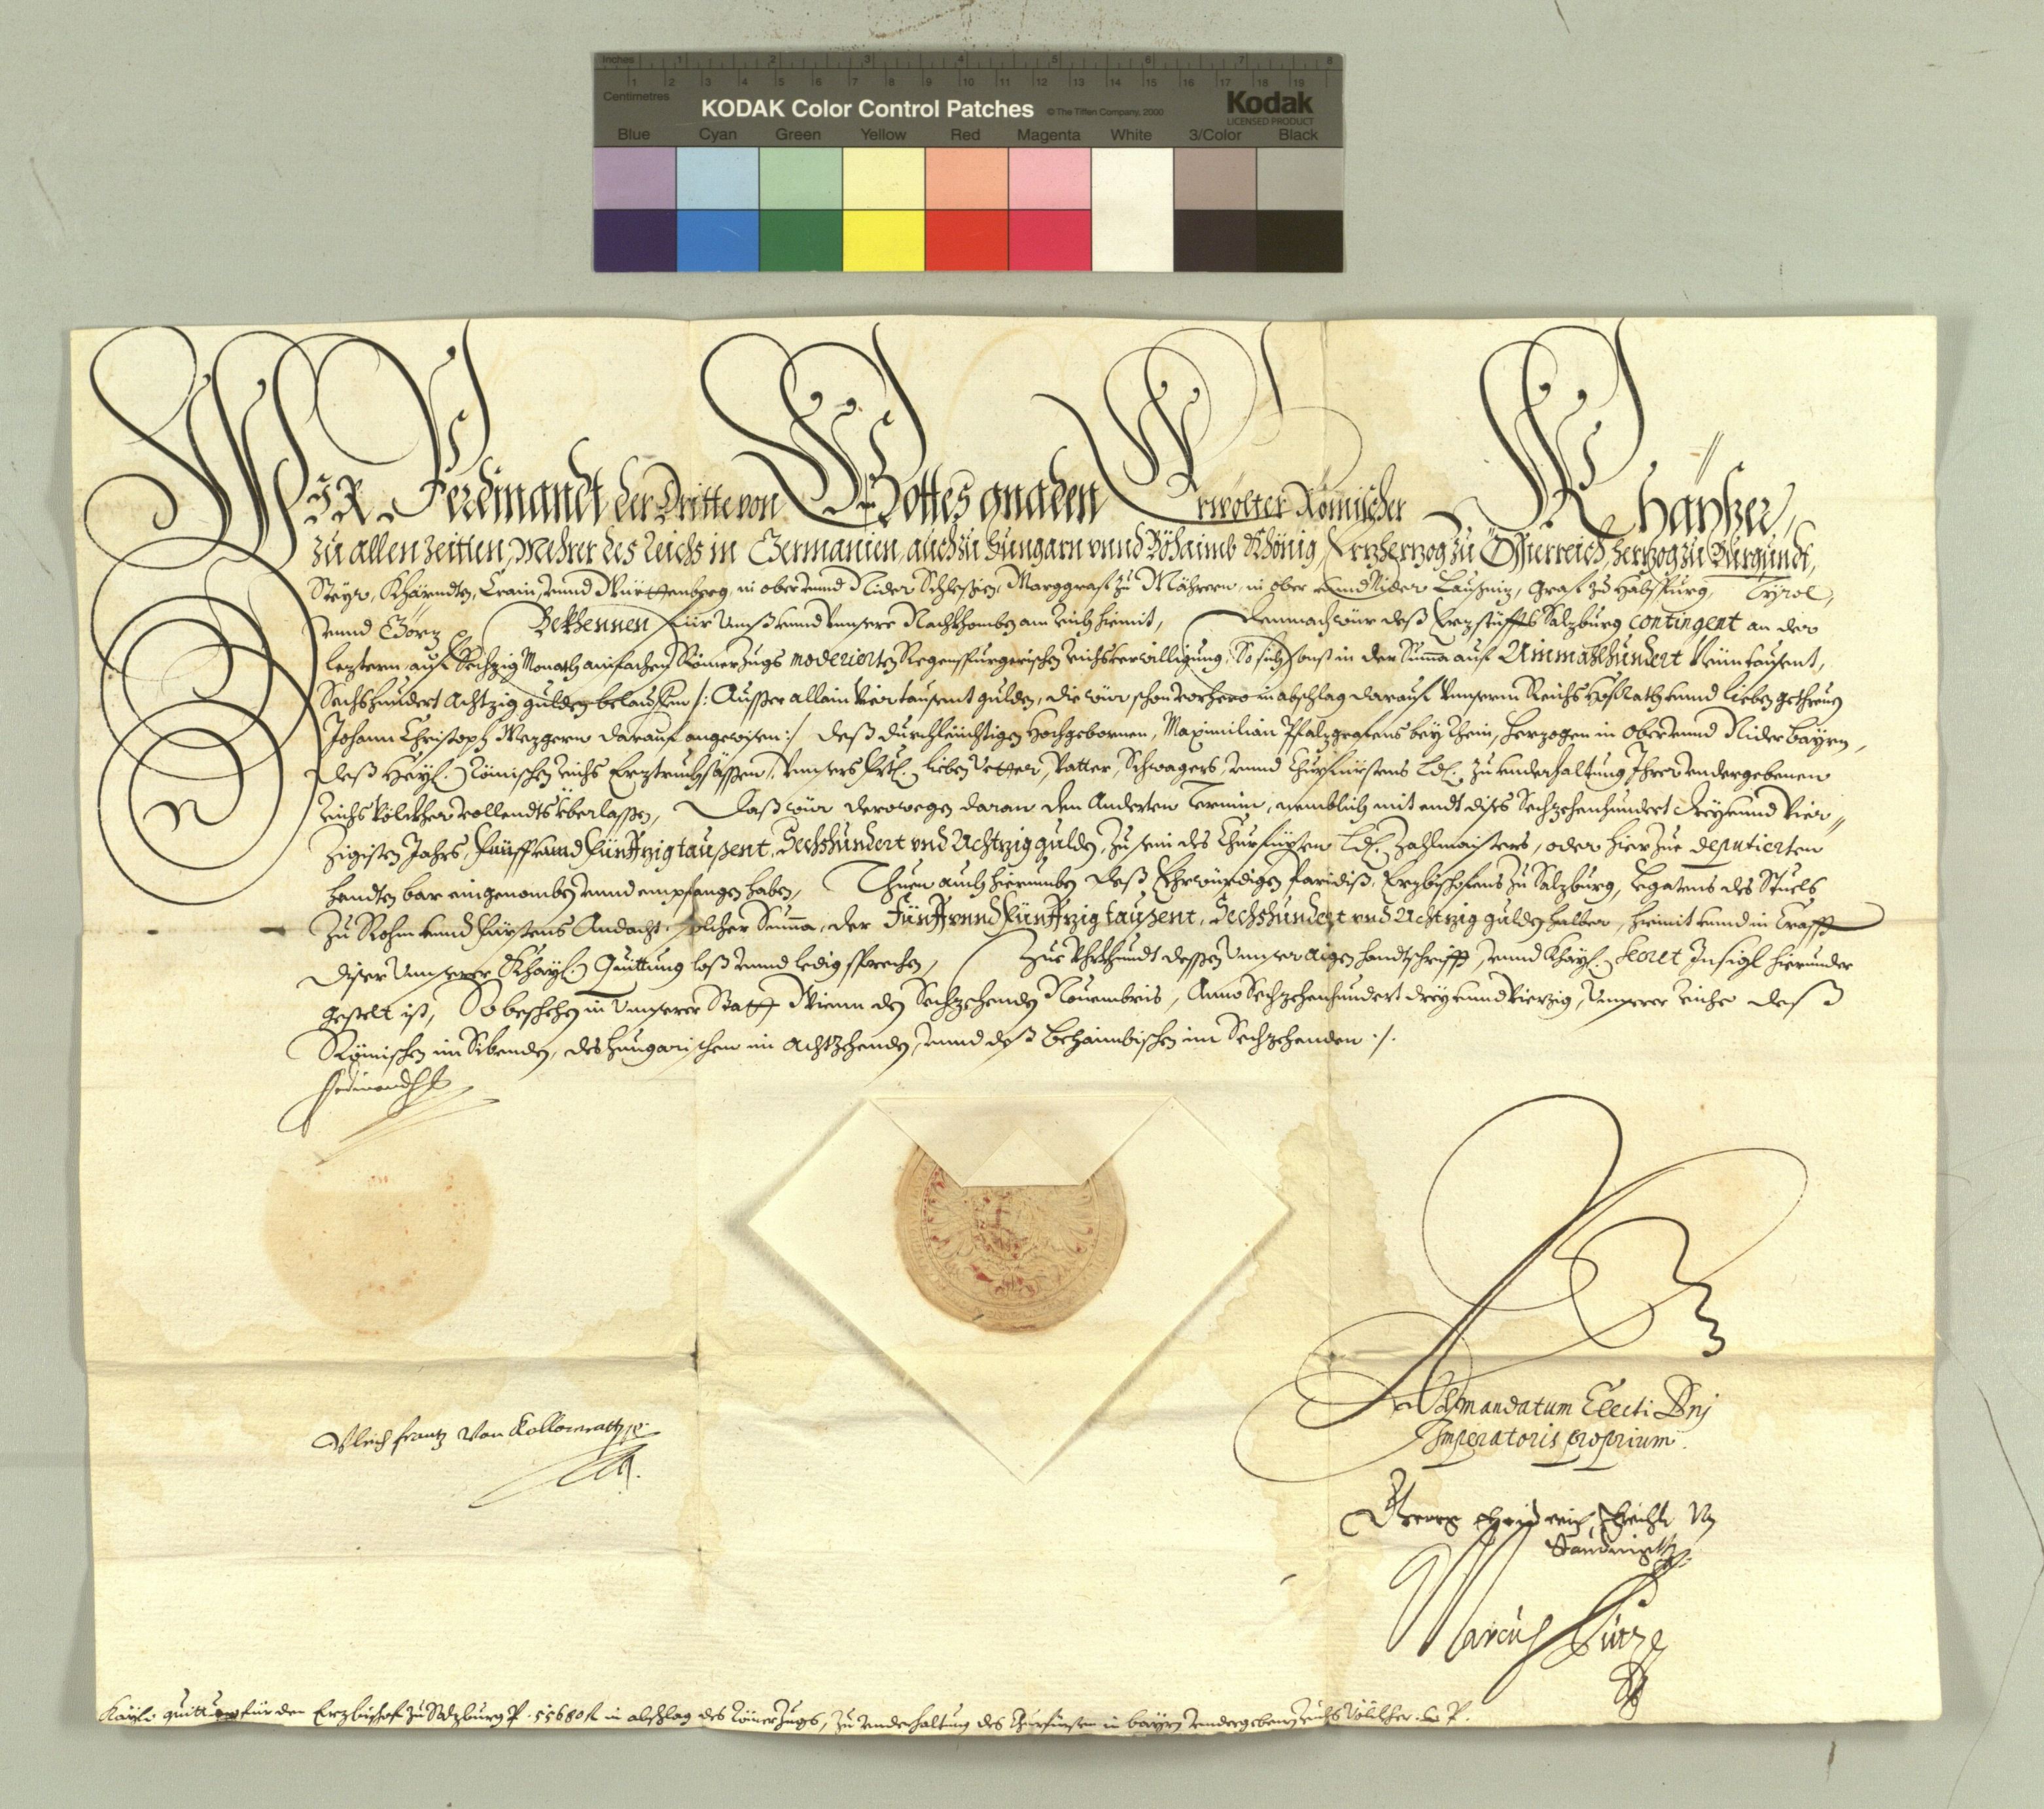 Inches 1 2 3 4 5 6 7 8
1 2 3 4 5 6 7 8 9 10 11 12 13 14 15 16 17 18 19
Centimetres
KODAK Color Control Patches © The Tiffen Company, 2000 Kodak
LICENSED PRODUCT
Blue Cyan Green Yellow Red Magenta White 3/Color Black
WIR Ferdinandt der Dritte von Gottes gnaden Erwölter Römischer Khayser,
zu allen Zeitten, Mehrer des Reichs in Germanien, auch zu Hungarn vnnd Böhaimb Khönig, Erzherzog zu Össterreich, Herzog zu Burgundt,
Steyr, Khärndten, Crain, vnnd Württenberg, in ober vnnd Nider Schlesien, Marggraf zu Mährern, in Ober vnnd Nider Laußniz, Graf zu Habspurg, Tyrol,
vnnd Görz Bekhennen für Unß vnnd Unsere Nachkhomben am Reich hiemit, Demnach wür deß Erzstüffts Salzburg contingent an der
leztern auf Sechzig Monath ainfachen Römerzugs moderierten Regenspurgerischen reichsverwilligung, So sich sonst in der Summa auf Ainmahlhundert Neüntausent,
Sechshundert Achtzig gulden belauffen /: Ausser allain Viertausent gulden, die wür schon vorhero in abschlag darauf Unserm Reichs Hof Rath vnnd lieben getreuen
Johann Christoph Mezgern darauf angewisen :/ deß durchleüchtigen Hochgebornen, Maximilian Pfalzgrafens bey Rhein, Herzogen in Ober vnnd Nider Bayrn,
deß Heyl. Römischen Reichs Erztruchsässen, Unsers frl. lieben Vetter, Vatter, Schwagers, vnnd Churfürstens Ld. zu vnderhaltung Ihrer vndergebenen
Reichs Völckher vollendts überlassen, Daß wür derowegen daran den Anderten Termin, nemblich mit endt dises Sechzehenhundert Drey vnnd Vier"
zigisten Jahrs, Fünff vnnd Fünffzig taußent, Sechshundert vnd Achtzig gulden, zu sein des Churfürsten Ld. Zahlmaisters, oder hier zue deputierten
handten bar eingenomben vnnd empfangen haben, Thuen auch hierumben deß Ehrwürdigen Paridiß, Erzbischofens zu Salzburg, Legatens des Stuels
zu Rohm vnnd Fürstens Andacht solcher Summa, der Fünff vnnd Fünffzig taußent, Sechshundert vnd Achtzig gulden halber, hiemit vnnd in Crafft
diser Unserer Khayl. Quittung loß vnnd ledig sprechen, Zue Uhrkhundt dessen Unser aigen handtschrifft, vnnd Khayl. Secret Insigl hierunder
gestelt ist, So beschehen in Unserer Statt Wienn den Sechzehenden Nouembris, Anno Sechzehenhundert drey vnnd Vierzig, Unserer Reiche deß
Römischen im Sibenden, des Hungarischen im Achtzehenden, vnnd deß Behaimbischen im Sechzehenden ./.
Ferdinandt
Ad mandatum Electi Dni
Imperatoris proprium.
Vlrich Frantz Von Kollowrath
Marcus Pütz
Kayl. quittung für den Erzbischof zu Salzburg P. 55680 fl in abschlag des Römerzugs, zu vnderhaltung des Churfürsten in Bayrn vndergebenen Reichs Völckher.